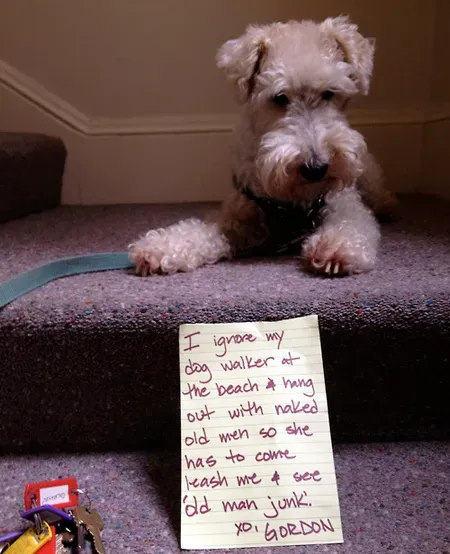 I ignore my
dog walker at
the beach & hang
out with naked
old men so she
has to come
leash me & see
'old man junk'.
xo, GORDON